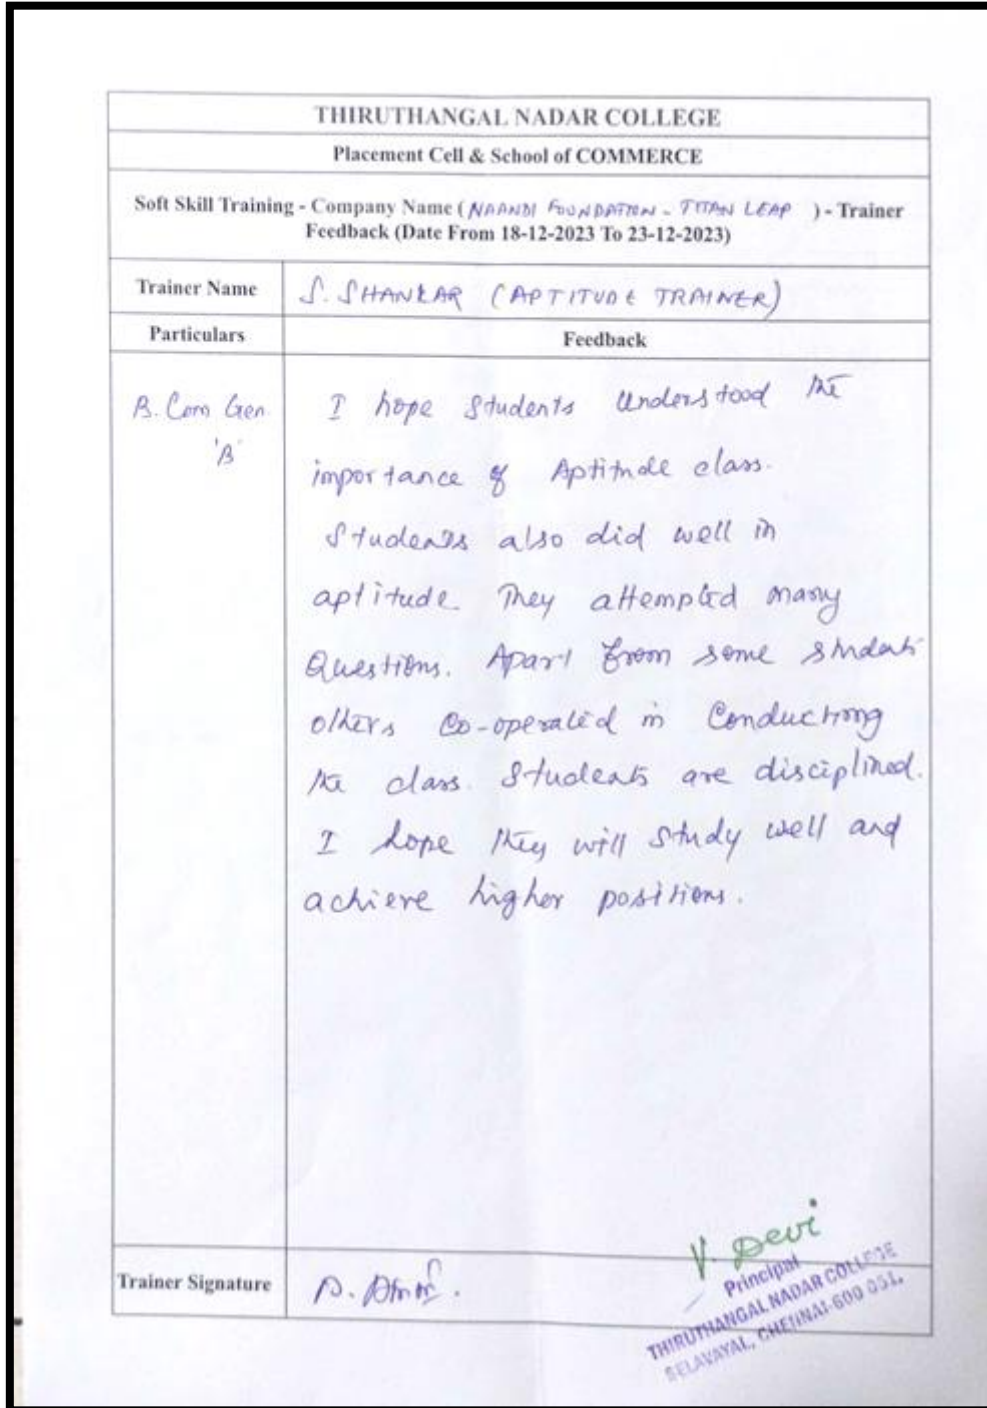 THIRUTHANGAL NADAR COLLEGE
Placement Cell & School of COMMERCE
Soft Skill Training - Company Name (NAANDI FOUNDATION - TITAN LEAP ) - Trainer
Feedback (Date From 18-12-2023 To 23-12-2023)
Trainer Name
S. SHANKAR (APTITUDE TRAINER)
Particulars
Feedback
B. Com Gen
'B'
I hope Students Understood the
importance of Aptitude class.
Students also did well in
aptitude They attempted many
Questions. Apart from some students
others Co-operated in Conducting
the class. Students are disciplined.
I hope they will study well and
achieve higher positions.
Trainer Signature
V. Devi
Principal
THIRUTHANGAL NADAR COLLEGE
SELAVAYAL, CHENNAI-600 051.